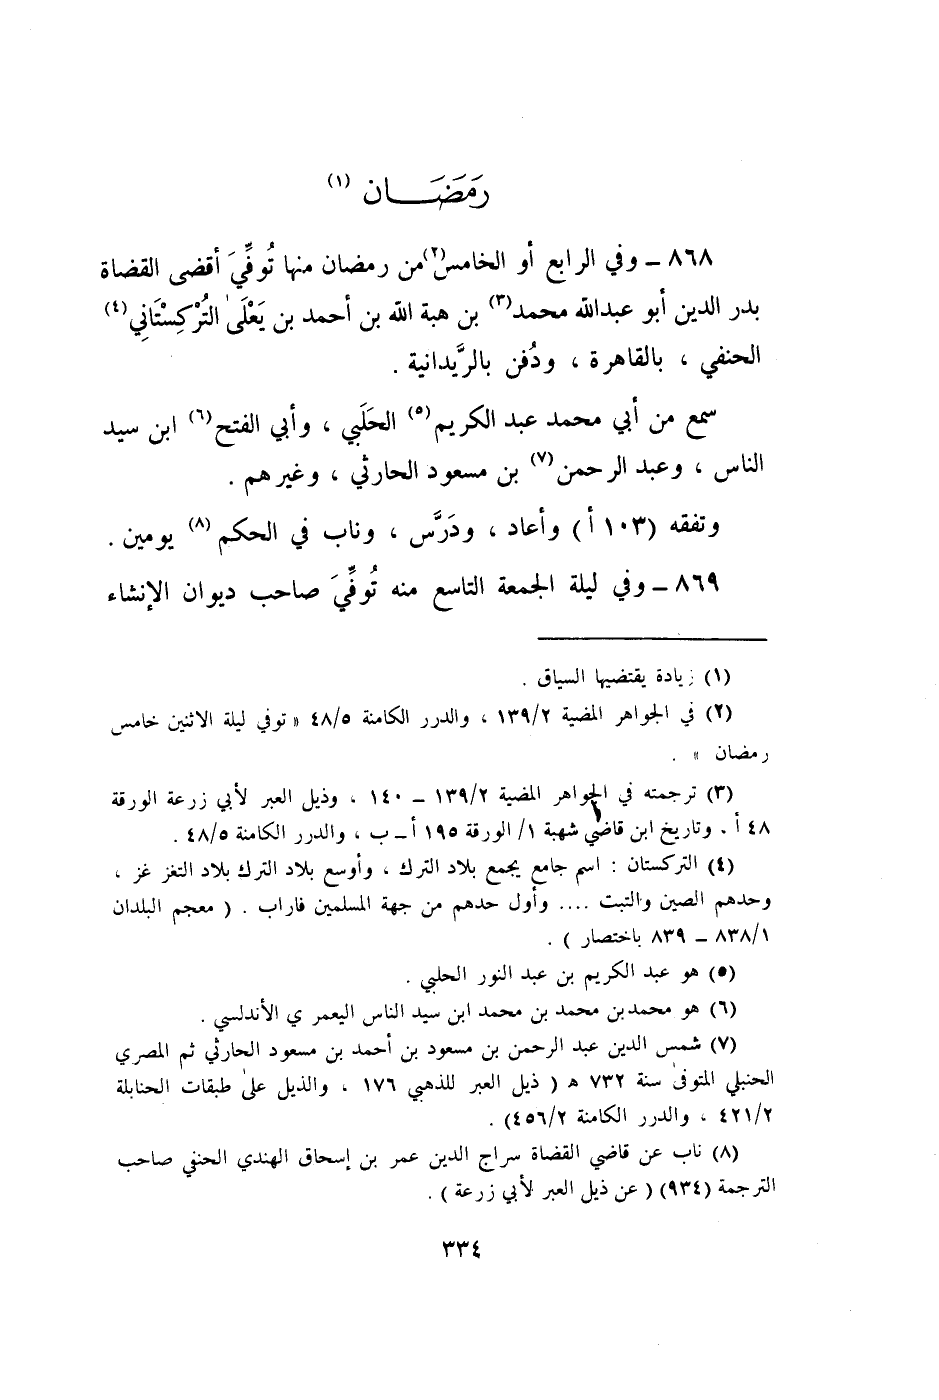 رَمَضَـــان (١)
٨٦٨ ــ وفي الرابع أو الخامس(٢)من رمضان منها تُوفِّيَ أقضى القضاة
بدر الدين أبو عبدالله محمد(٣) بن هبة الله بن أحمد بن يَعْلَىٰ التُرْكِسْتَانِي(٤)
الحنفي ، بالقاهرة ، ودُفن بالرَّيدانية .
سمع من أبي محمد عبد الكريم(٥) الحَلَبي ، وأبي الفتح(٦) ابن سيد
الناس ، وعبد الرحمن(٧) بن مسعود الحارثي ، وغيرهم .
وتفقه (١٠٣ أ) وأعاد ، ودَرَّس ، وناب في الحكم(٨) يومين .
٨٦٩ ــ وفي ليلة الجمعة التاسع منه تُوفِّيَ صاحب ديوان الإنشاء
(١) زيادة يقتضيها السياق .
(٢) في الجواهر المضية ١٣٩/٢ ، والدرر الكامنة ٤٨/٥ « توفي ليلة الاثنين خامس
رمضان » .
(٣) ترجمته في الجواهر المضية ١٣٩/٢ ــ ١٤٠ ، وذيل العبر لأبي زرعة الورقة
٤٨ أ . وتاريخ ابن قاضي شهبة ١/ الورقة ١٩٥ أ ــ ب ، والدرر الكامنة ٤٨/٥ .
(٤) التركستان : اسم جامع يجمع بلاد الترك ، وأوسع بلاد الترك بلاد التغز غز ،
وحدهم الصين والتبت .... وأول حدهم من جهة المسلمين فاراب . ( معجم البلدان
٨٣٨/١ ــ ٨٣٩ باختصار ) .
(٥) هو عبد الكريم بن عبد النور الحلبي .
(٦) هو محمدبن محمد بن محمد ابن سيد الناس اليعمري الأندلسي .
(٧) شمس الدين عبد الرحمن بن مسعود بن أحمد بن مسعود الحارثي ثم المصري
الحنبلي المتوفىٰ سنة ٧٣٢ ه ( ذيل العبر للذهبي ١٧٦ ، والذيل علىٰ طبقات الحنابلة
٤٢١/٢ ، والدرر الكامنة ٤٥٦/٢) .
(٨) ناب عن قاضي القضاة سراج الدين عمر بن إسحاق الهندي الحنفي صاحب
الترجمة (٩٣٤) ( عن ذيل العبر لأبي زرعة ) .
٣٣٤